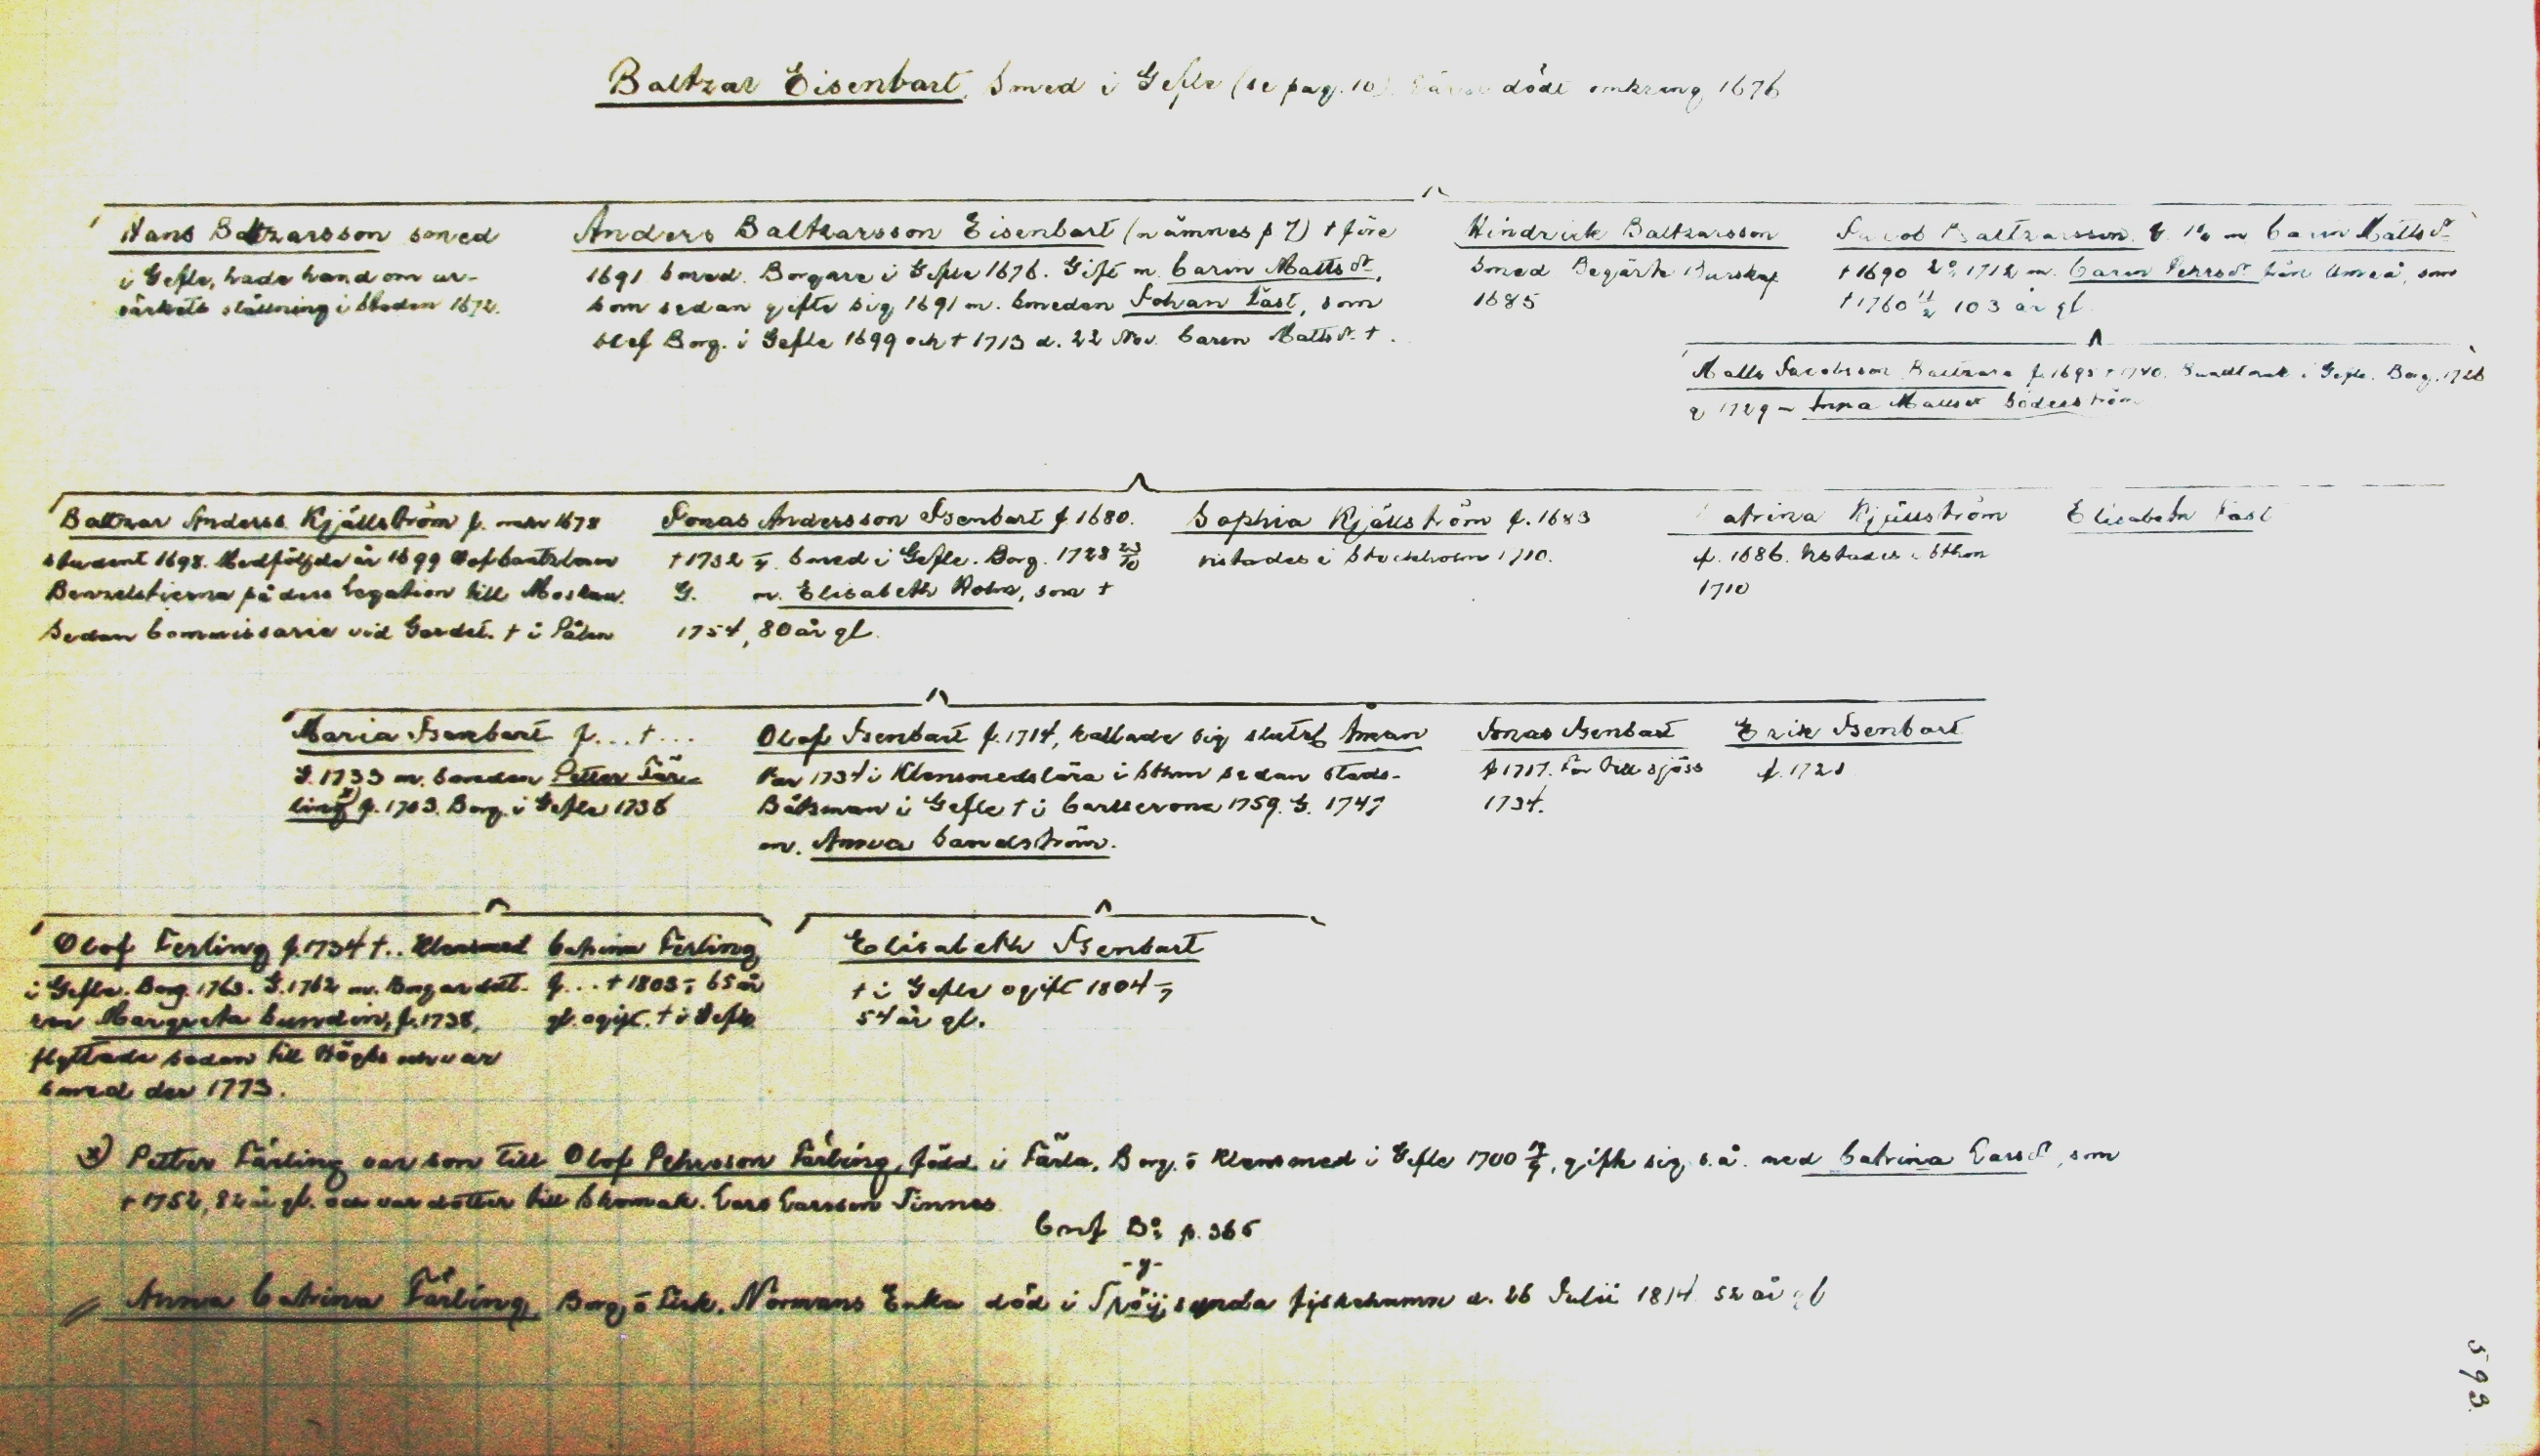 Baltzar Eisenbart, Smed i Gefle (se pag. 10). döde omkring 1676
Hans Baltzarsson smed
i Gefle, hade hand om ur-
värkets ställning i Staden 1672.
Anders Baltzarsson Eisenbart (nämnes p 7) † före
1691 Smed. Borgare i Gefle 1676. Gift m. Carin Matts dr.
Som sedan gifte sig 1691 m. Smeden Johan Fast, som
blef Borg. i Gefle 1699 och † 1713 d. 22 Nov. Carin Matts dr. † .
Hindrick Baltzarsson
Smed Begärte Burskap
1685
Jacob Baltzarsson. G. 1º m Carin Matts dr
† 1690 2º, 1712 m. Carin Pehrs dr från Umeå, som
† 1760 11/2 103 år gl.
Matts Jacobsson Baltzara f. 1695 † 1740. i Gefle. Borg. 1726
g 1729 m Anna Matts dr Söderström
Baltzar Anderss. Kjällström f. 1678
student 1698. Medföljde år 1699 Hofcantzleren
Benzelstierna på dess Legation till Moskau.
Sedan Commissarie vid Gardet. † i Pålen
Jonas Andersson Isenbart f. 1680.
† 1732 smed i Gefle. Borg. 1723 23/10
G. m. Elisabeth Holm, som †
1754, 80 år gl.
Sophia Kjällström f. 1683
vistades i Stockholm 1710.
Catrina Kjällström
f. 1686. vistades i Sthlm
1710
Elisabeth Fast
Maria Isenbart f...†...
G. 1733 m. Smeden Petter Fär-
ling x) f. 1703. Borg. i Gefle 1736
Olof Isenbart f. 1714, kallade sig slutel. Åman
Var 1734 i Klensmedslära i Sthm sedan Stads-
Båtsman i Gefle † i Carlscrona 1759. G. 1747
m. Anna Sandström.
Jonas Isenbart
f 1717. For till sjöss
1734.
Erik Isenbart
f. 1721
Olof Ferling f. 1734 †.. Klensmed
i Gefle. Borg. 1763. G. 1762 m. Borgardott.
Margreta Sundin, f. 1738,
flyttade sedan till Högbo och var
Smed der 1773.
Catrina Ferling
f... † 1803 65 år
gl. ogift. † i Gefle
Elisabeth Isenbart
† i Gefle ogift 1804
54 år gl.
x) Petter Färling var son till Olof Pehrsson Färling, född i Färla, Borg. o Klensmed i Gefle 1700, gifte sig s.å. med Catrina Lars dr, som
† 1752, 82 år gl. och var dotter till Skomak. Lars Larsson Finnes
Conf Bº p. 365
-y-
Anna Catrina Färling, Borg. o Fisk. Normans Enka död i fiskehamn d. 26 Julii 1814 52 år gl
593.